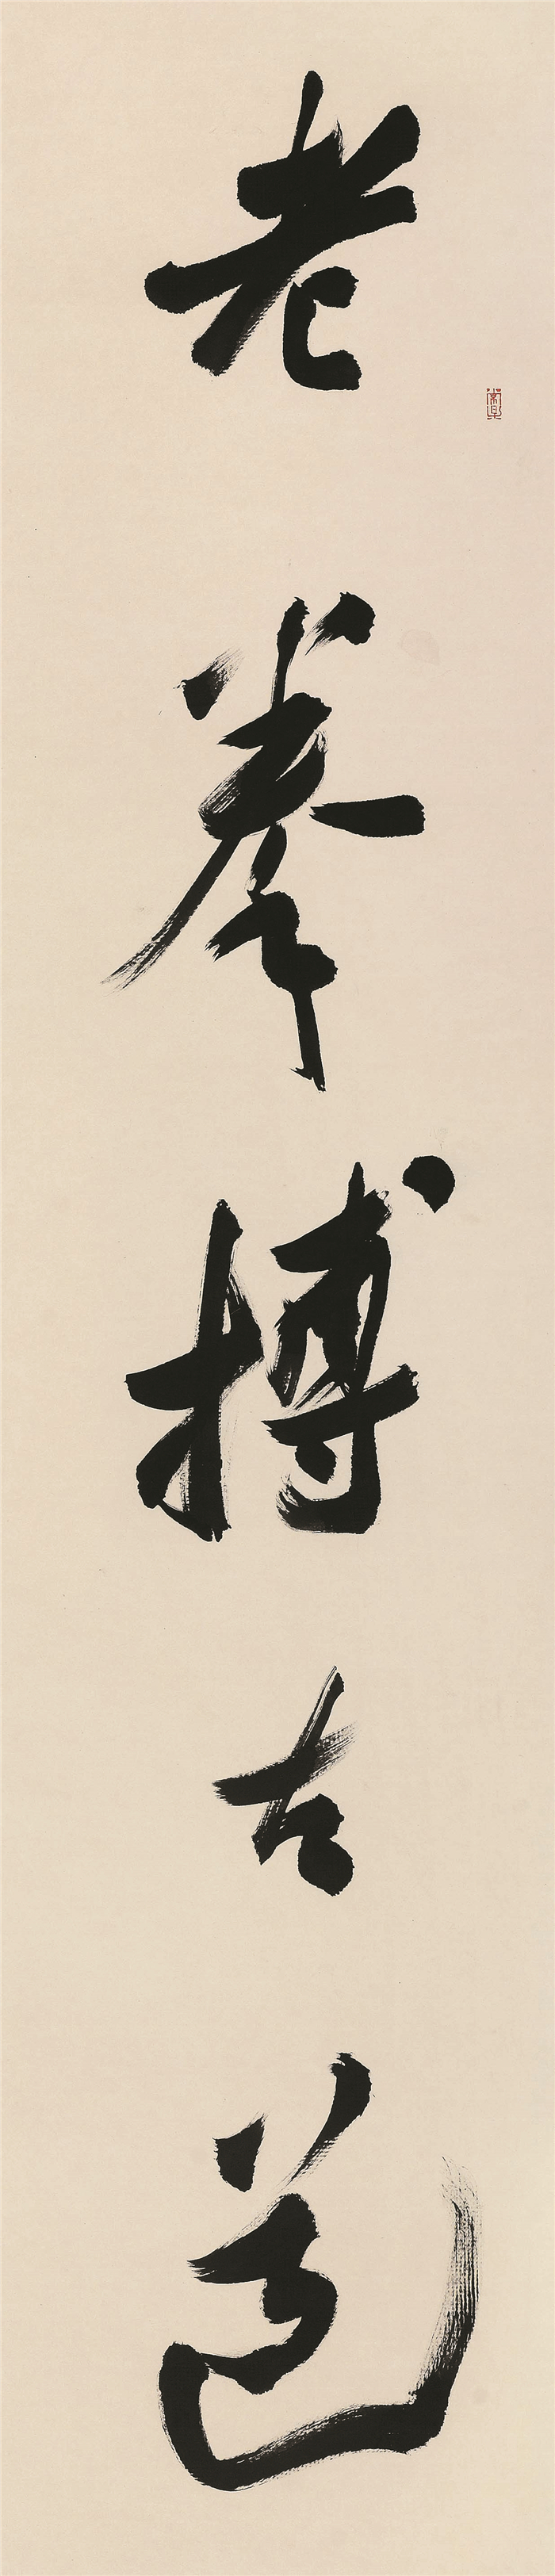 老拳搏古道